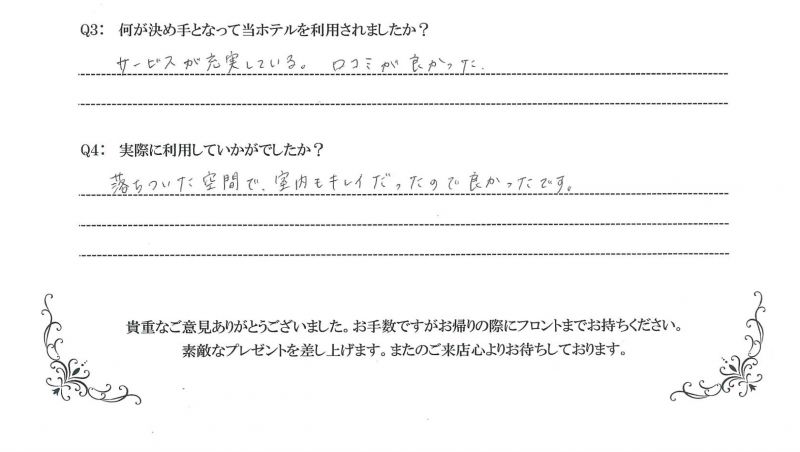 Q3: 何が決め手となって当ホテルを利用されましたか？
サービスが充実している。 口コミが良かった.
Q4: 実際に利用していかがでしたか？
落ちついた空間で、室内もキレイだったので良かったです。
貴重なご意見ありがとうございました。お手数ですがお帰りの際にフロントまでお持ちください。
素敵なプレゼントを差し上げます。またのご来店心よりお待ちしております。